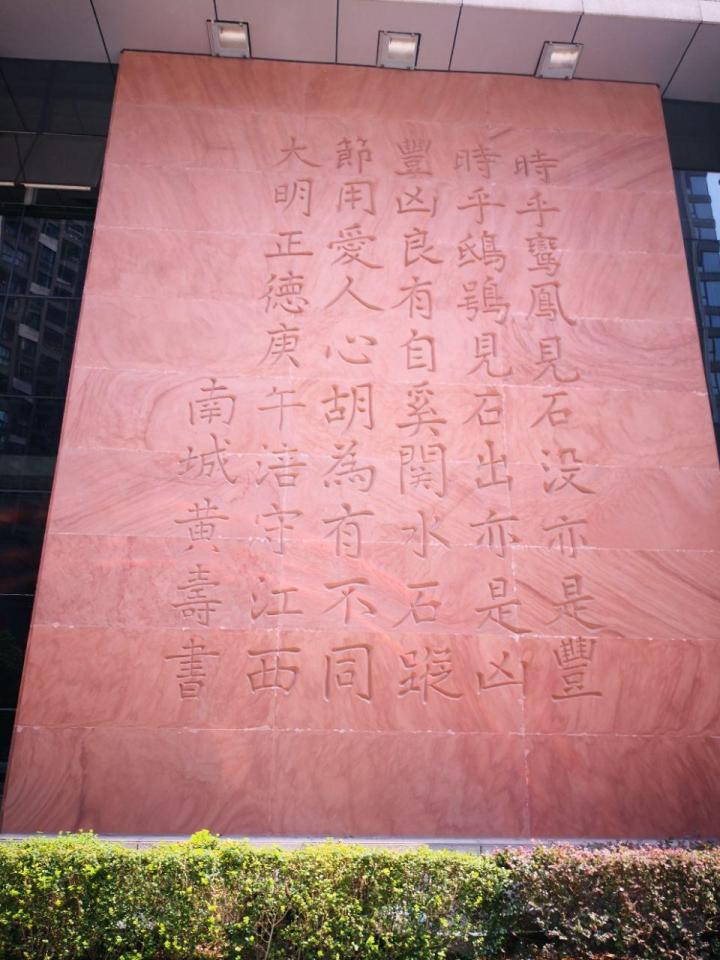 時乎鸞鳳見石没亦是豐
時乎鴟鴞見石出亦是凶
豐凶良有自奚関水石蹤
節用愛人心胡為有不同
大明正德庚午涪守江西
南城黄壽書